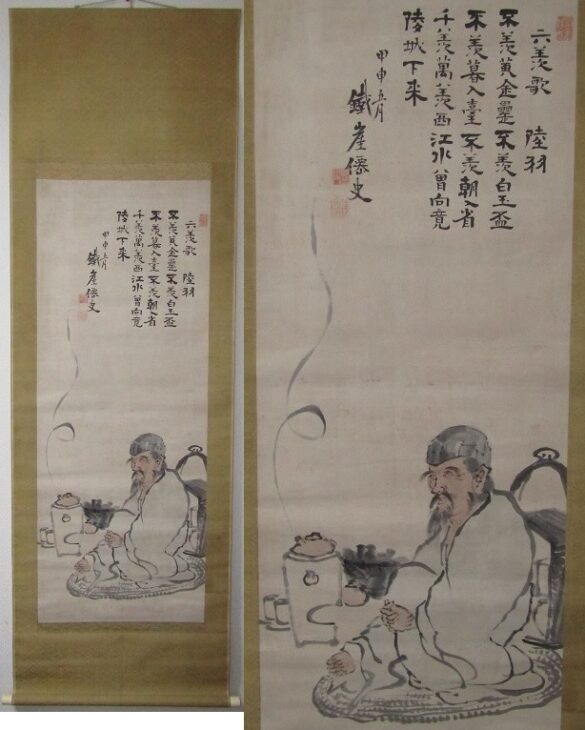 六羨歌 陸羽
不羨黄金罍不羨白玉盃
不羨暮入臺不羨朝入省
千羨萬羨西江水曽向竟
陵城下来
甲申五月
鐵崖僊史
六羨歌 陸羽
不羨黄金罍不羨白玉盃
不羨暮入臺不羨朝入省
千羨萬羨西江水曽向竟
陵城下来
甲申五月
鐵崖僊史